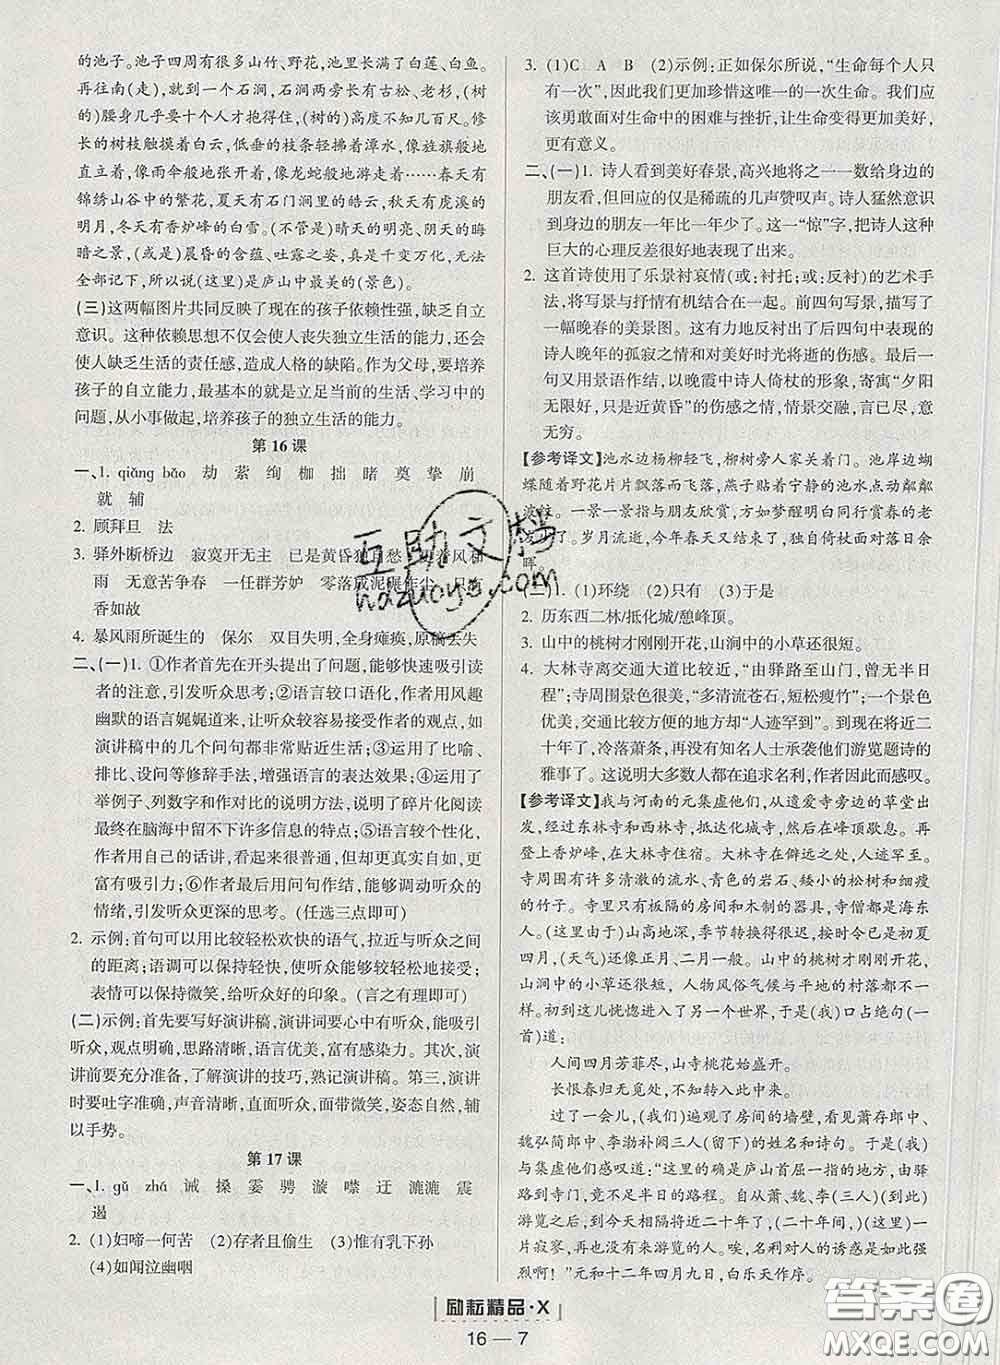 的池子。池子四周有很多山竹、野花,池子里长满了白莲、白鱼。
再往南(走),就到一个石涧,石涧两旁长有古松、老杉,(树
的)腰身几乎要十个人才抱得住,(树的)高度不知几百尺。修
长的树枝触摸着白云,低垂的枝条轻拂着潭水,像旌旗般地
竖立着,像雨伞般地张开着,像龙蛇般地游走着……春天有
锦绣山谷中的繁花,夏天有石门涧里的云,秋天有虎溪的
明月,冬天有香炉峰的白雪。(不管是)晴天的明亮、阴天的晦
暗之景,(或是)晨昏的含蕴、吐露之姿,真是千变万化,无法
全部记下,所以说(这里)是庐山中最美的(景色)。
(三)这两幅图片共同反映了现在的孩子依赖性强,缺乏自立
意识。这种依赖思想不仅会使人丧失独立生活的能力,还会
使人缺乏生活的责任感,造成人格的缺陷。作为父母,要培养
孩子的自立能力,最基本的就是立足当前的生活、学习中的
问题,从小事做起,培养孩子的独立生活的能力。
第16课
一、1. qiǎng bǎo 劫 萦 绚 枷 拙 睹 奠 挚 崩
就 辅
2. 顾拜旦 法
3. 驿外断桥边 寂寞开无主 已是黄昏独自愁
雨 无意苦争春 一任群芳妒 零落成泥碾作尘 只有
香如故
4. 暴风雨所诞生的 保尔 双目失明,全身瘫痪,原稿丢失
二、(一)1. ①作者首先在开头提出了问题,能够快速吸引读
者的注意,引发听众思考;②语言较口语化,作者用风趣
幽默的语言娓娓道来,让听众较容易接受作者的观点,如
演讲稿中的几个问句都非常贴近生活;③运用了比喻、
排比、设问等修辞手法,增强语言的表达效果;④运用了
举例子、列数字和作对比的说明方法,说明了碎片化阅读
最终在脑海中留不下许多信息的特点;⑤语言较个性化,
作者用自己的话讲,看起来很普通,但却更真实自如,更
富有吸引力;⑥作者最后用问句作结,能够调动听众的
情绪,引发听众更深的思考。(任选三点即可)
2. 示例:首句可以用比较轻松欢快的语气,拉近与听众之间
的距离;语调可以保持轻快,使听众能够轻松地接受;
表情可以保持微笑,给听众好的印象。(言之有理即可)
(二)示例:首先要写好演讲稿,演讲词要心中有听众,能吸引
听众,观点明确,思路清晰,语言优美,富有感染力。其次,演
讲前要充分准备,了解演讲的技巧,熟记演讲稿。第三,演讲
时要吐字准确,声音清晰,直面听众,面带微笑,姿态自然,辅
以手势。
第17课
一、1. gǔ zhá 诫 搡 霎 骋 漩 噤 迂 漉漉 震
遏
2. (1)妇啼一何苦 (2)存者且偷生 (3)惟有乳下孙
(4)如闻泣幽咽
3. (1)C A B (2)示例:正如保尔所说,“生命每个人只
有一次”,因此我们更加珍惜这唯一的一次生命。我们应
该勇敢面对生命中的困难与挫折,让生命变得更美好,更
有意义。
二、(一)1. 诗人看到美好春景,高兴地将之一一数给身边的
朋友看,但回应的仅是稀疏的几声赞叹声。诗人猛然意识
到身边的朋友一年比一年少了。这一“惊”字,把诗人这种
巨大的心理反差很好地表现了出来。
2. 这首诗使用了乐景衬哀情(或:衬托;或:反衬)的艺术手
法,将写景与抒情有机结合在一起。前四句写景,描写了
一幅晚春的美景图。这有力地反衬出了后四句中表现的
诗人晚年的孤寂之情和对美好时光将逝的伤感。最后一
句又用景语作结,以晚霞中诗人倚杖的形象,寄寓“夕阳
无限好,只是近黄昏”的伤感之情,情景交融,言已尽,意
无穷。
【参考译文】池水边杨柳轻飞,柳树旁人家关着门。池岸边蝴
蝶随着野花片片飘落而飞舞,燕子对着宁静的池水点动粼粼
波纹。一景一景指与朋友欣赏,方如梦醒明白同行赏春者已
没有多少。岁月流逝,今年春天又结束了,独自倚杖面对落日余
晖。
(二)1. (1)环绕 (2)只有 (3)于是
2. 历东西二林/抵化城/憩峰顶。
3. 山中的桃树才刚刚开花,山涧中的小草还很短。
4. 大林寺离交通大道比较近,“由驿路至山门,曾无半日
程”;寺周围景色很美,“多清流苍石,短松瘦竹”;一个景色
优美,交通比较方便的地方却“人迹罕到”。到现在将近二
十年了,冷落萧条,再没有知名人士承袭他们游览题诗的
雅事了。这说明大多数人都在追求名利,作者因此而感叹。
【参考译文】我与河南的元集虚他们,从遗爱寺旁边的草堂出
发,经过东林寺和西林寺,抵达化城寺,然后在峰顶歇息。再
登上香炉峰,在大林寺住宿。大林寺在僻远之处,人迹罕至。
寺周围有许多清澈的流水、青色的岩石、矮小的松树和细瘦
的竹子。寺里只有板隔的房间和木制的器具,寺僧都是海东
人。(因为)山高地深,季节转换得很迟,按时令已是初夏
四月,(天气)还像正月、二月一般。山中的桃树才刚刚开花,
山涧中的小草还很短, 人物风俗气候与平地的村落并不相
同。初到这儿恍惚进入了另一个世界,于是(我)口占绝句(一
首)道:
人间四月芳菲尽,山寺桃花始盛开。
长恨春归无觅处,不知转入此中来。
过了一会儿,(我们)遍观了房间的墙壁,看见萧存郎中、
魏弘简郎中、李渤补阙三人(留下)的姓名和诗句。于是(我)
与集虚他们感叹道:“这里的确是庐山首屈一指的地方,由驿
路到寺门,还没半日的路程。自从萧、魏、李(三人)(到此)
游览之后,到今天将近二十年了,(二十年间,)(这里)一
片寂寥,再也没有来游览的文人。唉,名利对人的诱惑是如此强
烈啊!”元和十二年四月九日,白乐天作序。
励耘精品·X
16 — 7
互助文档
hazuoye.com
答案圈
MXQE.COM